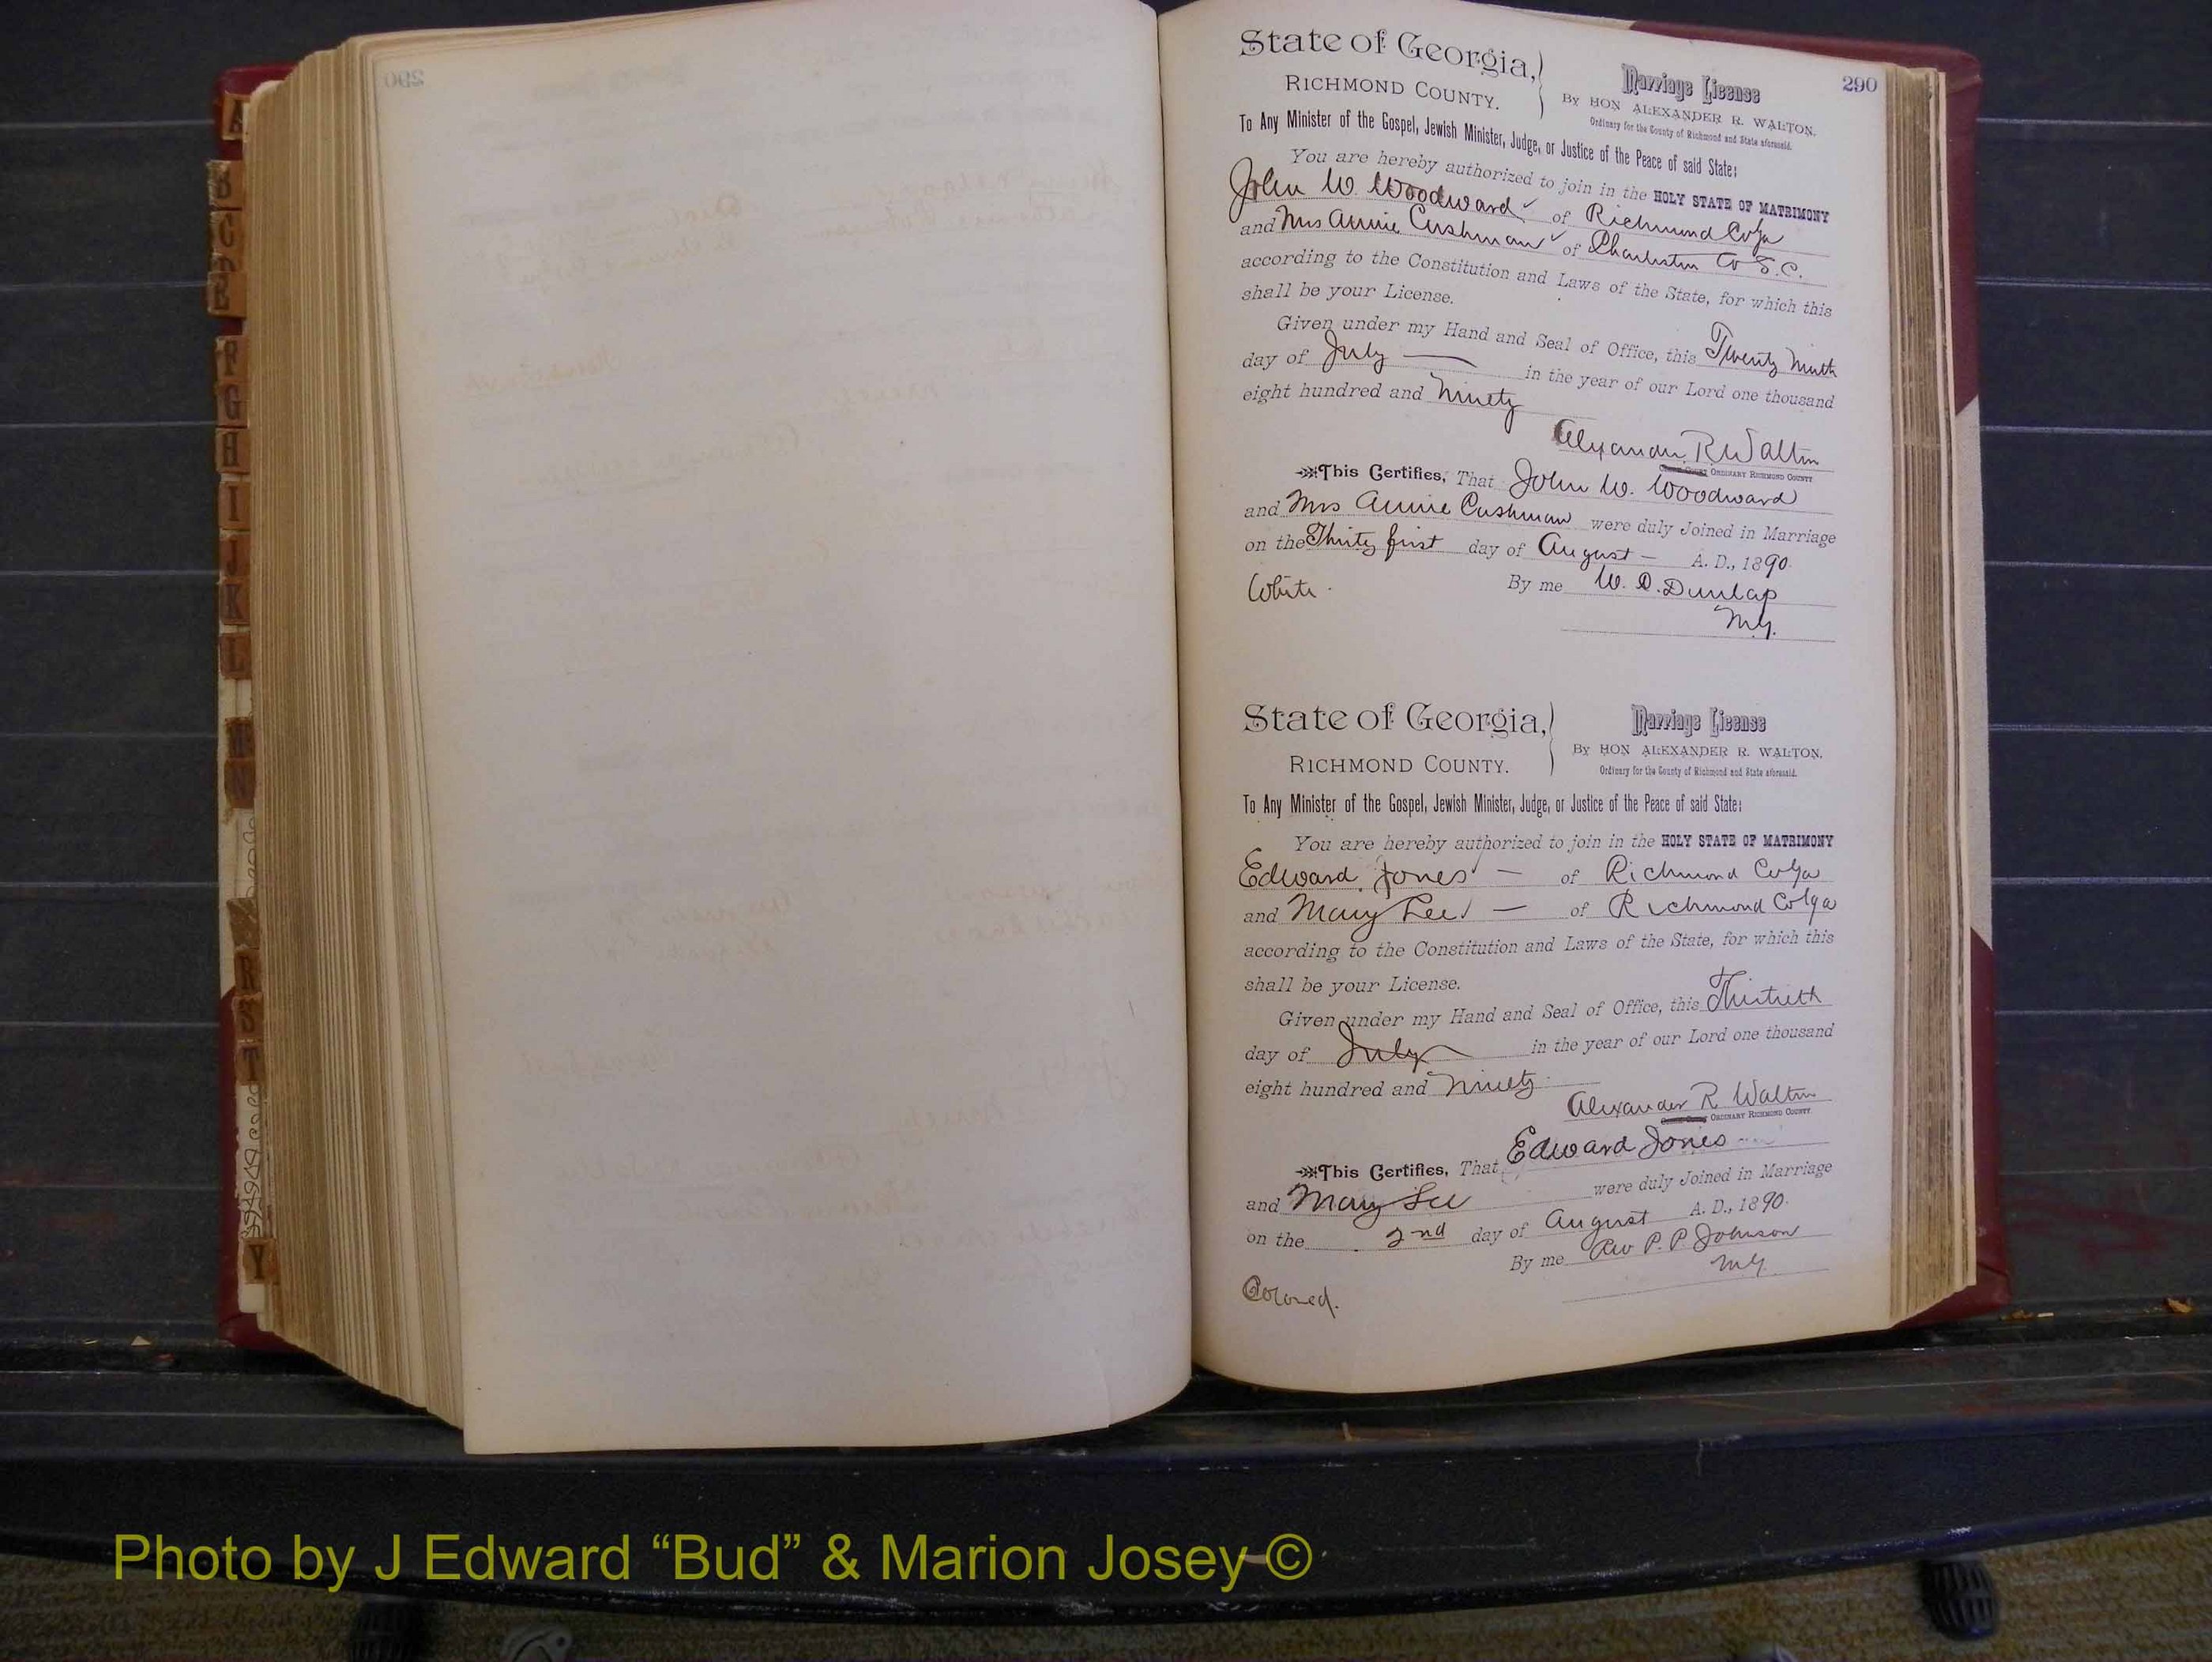 A
B
C
D
E
F
G
H
I
J
K
L
M
N
R
S
T
Y
290
State of Georgia,
RICHMOND COUNTY.
Marriage License
By HON ALEXANDER R. WALTON,
Ordinary for the County of Richmond and State aforesaid.
To Any Minister of the Gospel, Jewish Minister, Judge, or Justice of the Peace of said State:
You are hereby authorized to join in the HOLY STATE OF MATRIMONY
John W. Woodward of Richmond Co Ga
and Mrs Annie Cushman of Charleston Co S.C.
according to the Constitution and Laws of the State, for which this
shall be your License.
Given under my Hand and Seal of Office, this Twenty Ninth
day of July in the year of our Lord one thousand
eight hundred and Ninety
Alexander R Walton
ORDINARY RICHMOND COUNTY
This Certifies, That John W. Woodward
and Mrs Annie Cushman were duly Joined in Marriage
on the Thirty first day of August A. D., 1890.
White. By me W. D. Dunlap
M.G.
State of Georgia,
RICHMOND COUNTY.
Marriage License
By HON ALEXANDER R. WALTON,
Ordinary for the County of Richmond and State aforesaid.
To Any Minister of the Gospel, Jewish Minister, Judge, or Justice of the Peace of said State:
You are hereby authorized to join in the HOLY STATE OF MATRIMONY
Edward Jones - of Richmond Co Ga
and Mary Lee - of Richmond Co Ga
according to the Constitution and Laws of the State, for which this
shall be your License.
Given under my Hand and Seal of Office, this Thirtieth
day of July in the year of our Lord one thousand
eight hundred and Ninety
Alexander R Walton
ORDINARY RICHMOND COUNTY
This Certifies, That Edward Jones
and Mary Lee were duly Joined in Marriage
on the 2nd day of August A. D., 1890.
By me Rev P. P. Johnson
M.G.
Colored.
Photo by J Edward “Bud” & Marion Josey ©